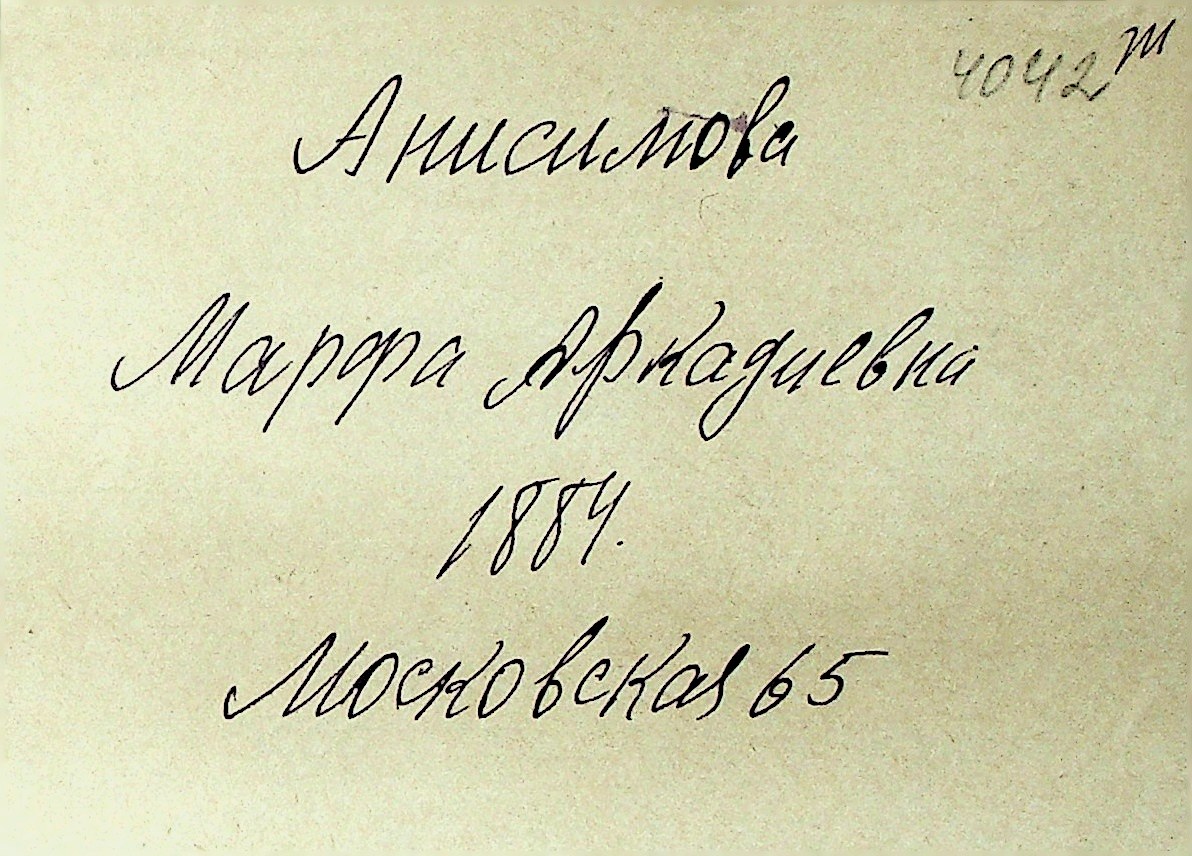 4042 т
Анисимова
Марфа Аркадиевна
1884.
Московская 65